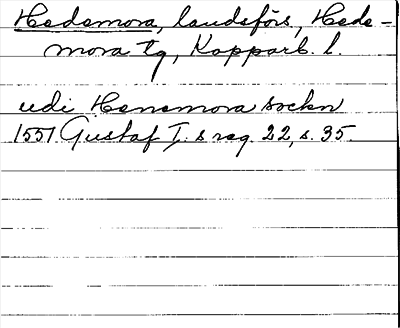 Hedemora, landsförs, Hede-
mora tg, Kopparb. l.
udi Henemora sockn
1551 Gustaf I. s reg. 22, s. 35.